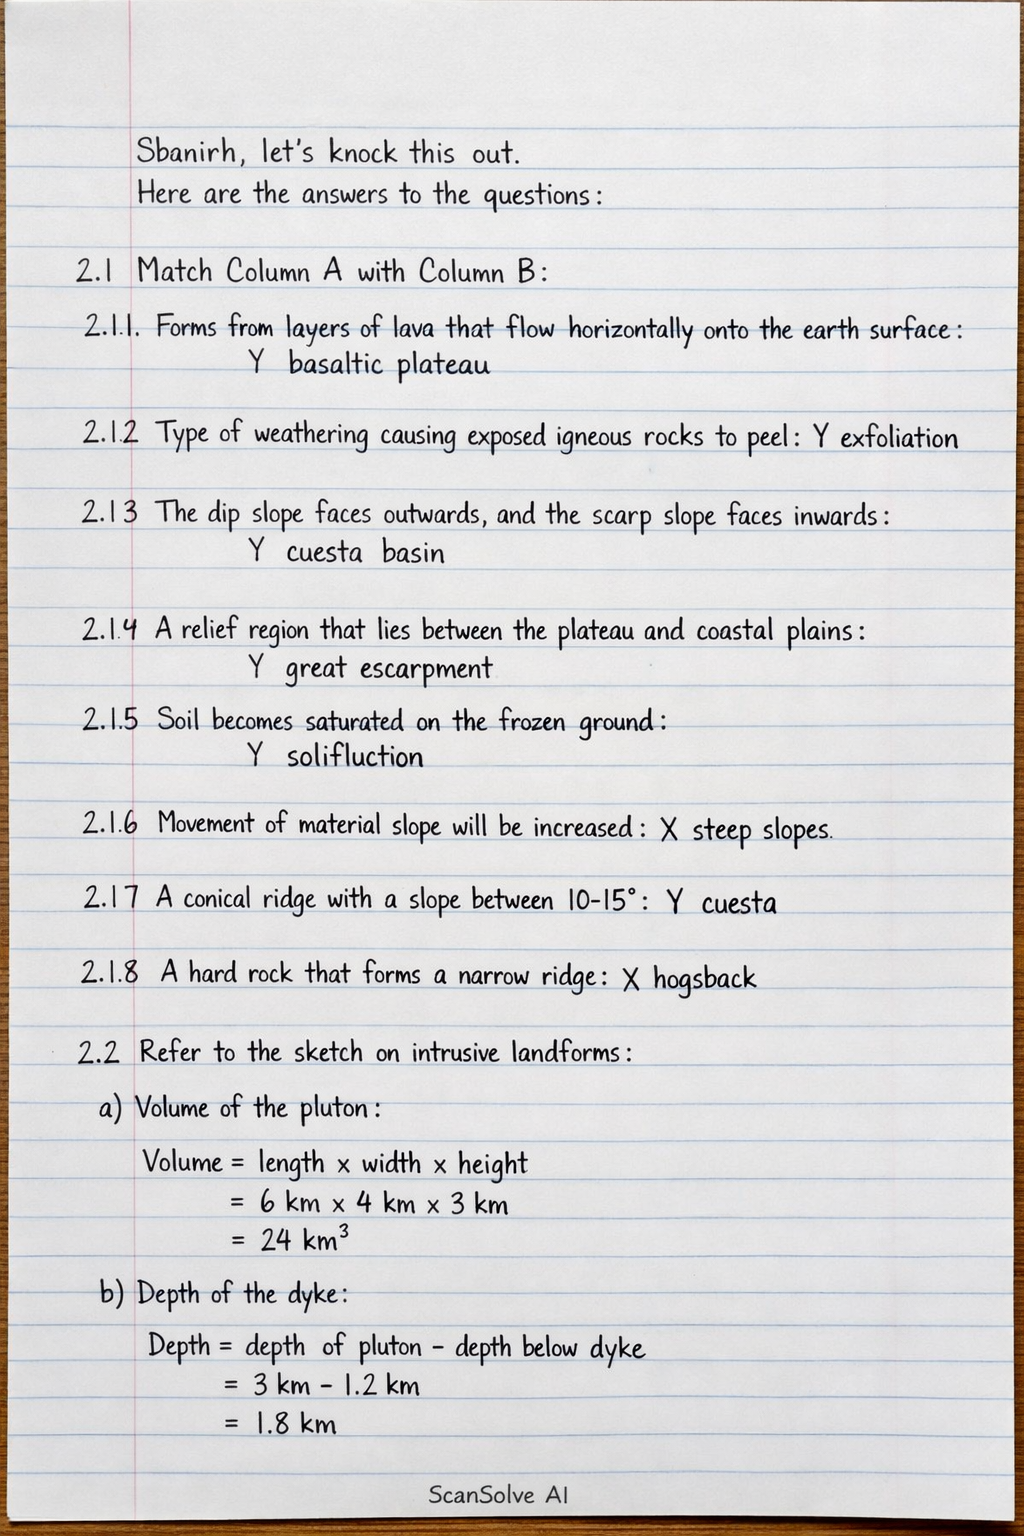 Sbanirh, let's knock this out.
Here are the answers to the questions:
2.1 Match Column A with Column B:
2.1.1. Forms from layers of lava that flow horizontally onto the earth surface:
Y basaltic plateau
2.1.2 Type of weathering causing exposed igneous rocks to peel: Y exfoliation
2.13 The dip slope faces outwards, and the scarp slope faces inwards:
Y cuesta basin
2.1.4 A relief region that lies between the plateau and coastal plains:
Y great escarpment
2.1.5 Soil becomes saturated on the frozen ground:
Y solifluction
2.1.6 Movement of material slope will be increased: X steep slopes.
2.17 A conical ridge with a slope between 10-15°: Y cuesta
2.1.8 A hard rock that forms a narrow ridge: X hogsback
2.2 Refer to the sketch on intrusive landforms:
a) Volume of the pluton:
Volume = length x width x height
= 6 km x 4 km x 3 km
= 24 km³
b) Depth of the dyke:
Depth = depth of pluton - depth below dyke
= 3 km - 1.2 km
= 1.8 km
ScanSolve AI